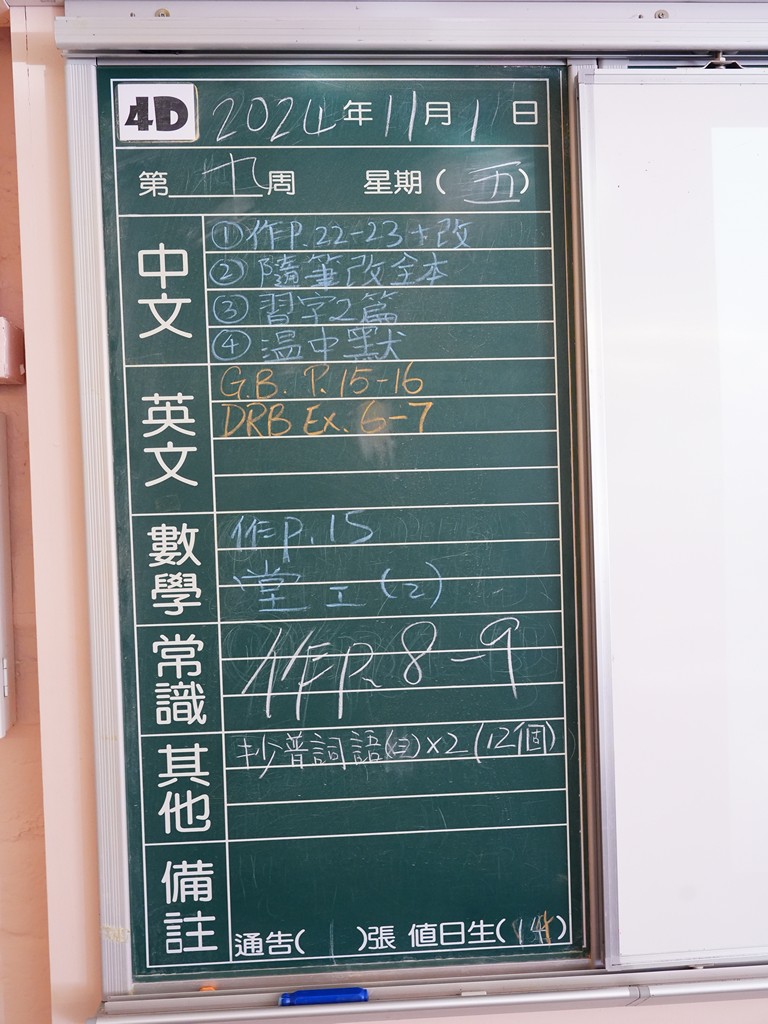 4D 2024年11月1日
第九周 星期(五)
中文
①作P.22-23+改
②隨筆改全本
③習字2篇
④温中默
英文
G.B. P.15-16
DRB Ex. 6-7
數學
作P.15
堂工(2)
常識
作P.8-9
其他
抄普詞語(三)×2(12個)
備註
通告(1)張 值日生(14)